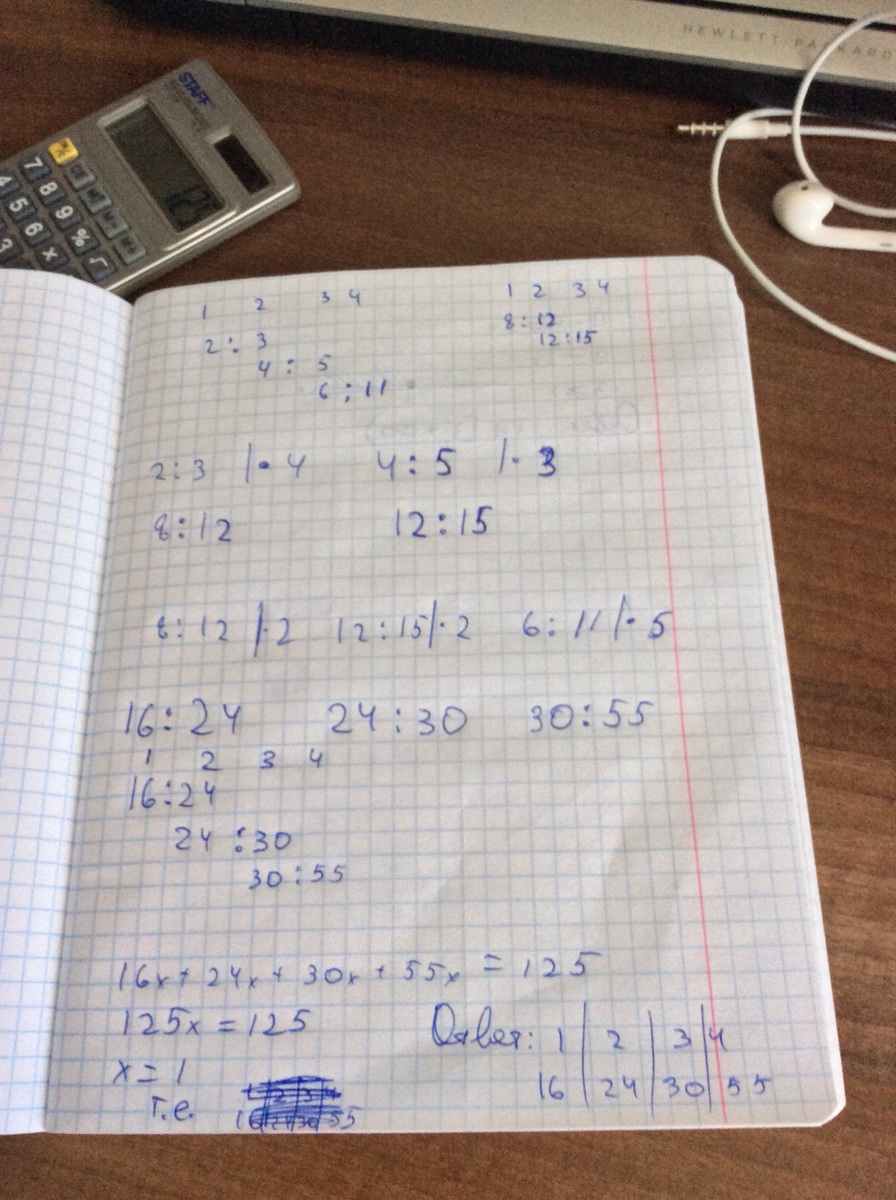 HEWLETT-PACKARD
STAFF
125
7 8 9 %
4 5 6 x √
3
1 2 3 4
2 : 3
4 : 5
6 : 11
1 2 3 4
8 : 12
12 : 15
2:3 |· 4 4:5 |· 3
8:12 12:15
8:12 |·2 12:15|·2 6:11|·5
16:24 24:30 30:55
1 2 3 4
16:24
24:30
30:55
16x + 24x + 30x + 55x = 125
125x = 125
x = 1
т.е.
Ответ: 1 | 2 | 3 | 4
16 | 24 | 30 | 55